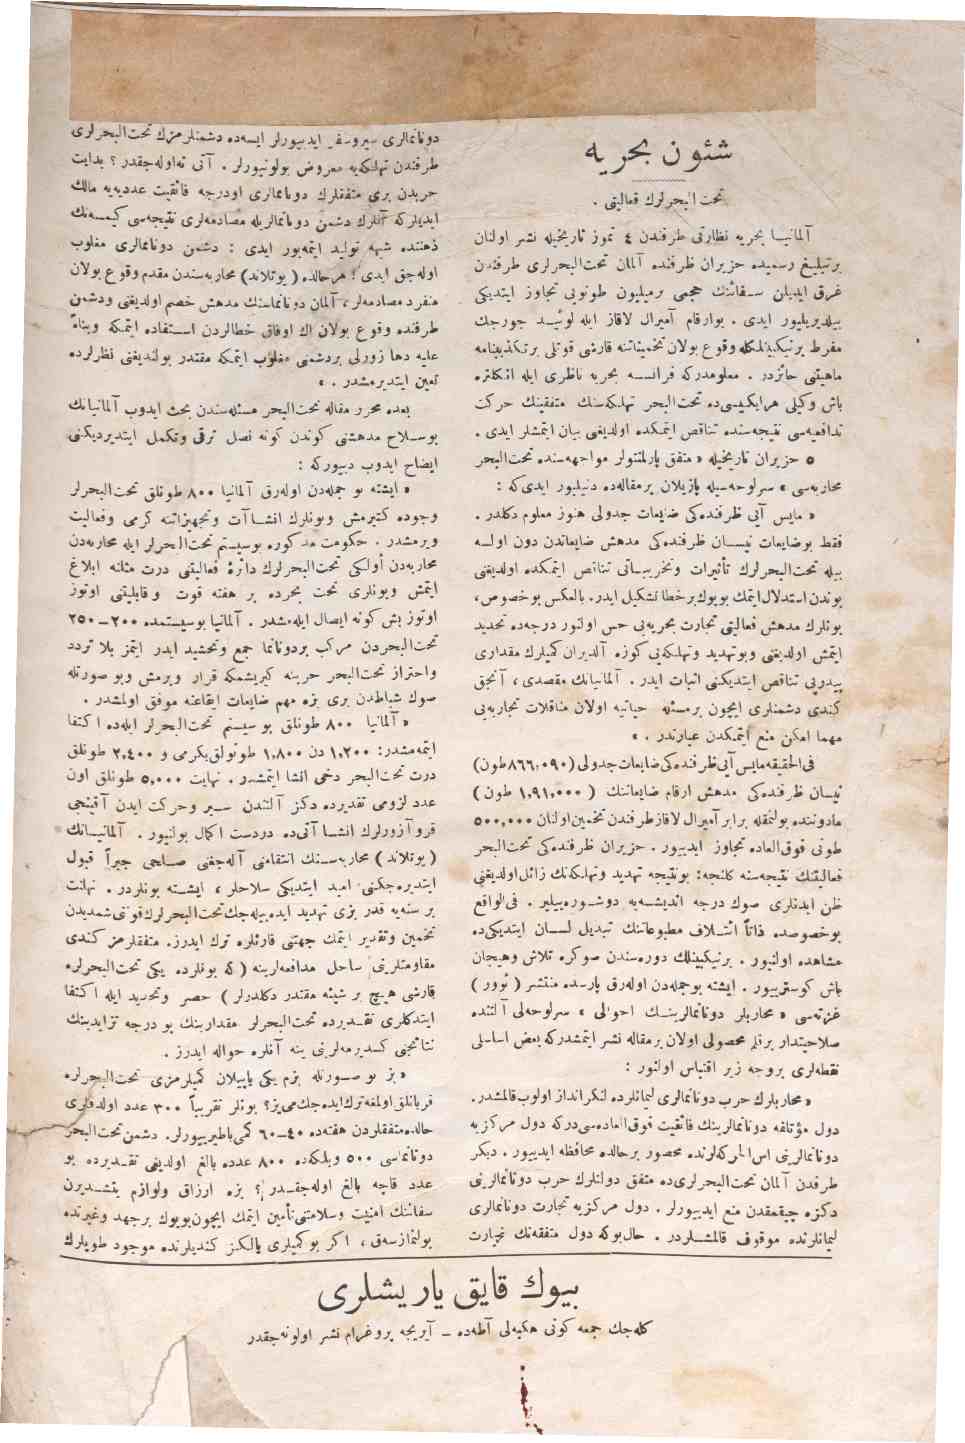 شئون بحریه
تحت البحرلرك فعالیتی .
آلمانیا بحریه نظارتی طرفندن ٤ تموز تاریخیله نشر اولنان
برتبلیغ رسمیده حزیران ظرفنده آلمان تحت‌البحرلری طرفندن
غرق ایدیلن سفائنك حجمی برملیون طونوبی تجاوز ایتدیکی
بیلدیریلیور ایدی . بوارقام آمیرال لاقاز ایله لوئید جورجك
مفرط برنیکبینلکله وقوع بولان تخمیناتنه قارشی قوتلی برتکذیبنامه
ماهیتنی حائزدر . معلومدرکه فرانسه بحریه ناظری ایله انکلتره
باش وکیلی هرایکیسی‌ده تحت‌البحر تهلکه‌سنك متفقینك حرکت
تدافعیه‌سی نتیجه‌سنده تناقص ایتمکده اولدیغی بیان ایتمشلر ایدی .
٥ حزیران تاریخیله « متفق پارلمنتولر مواجهه‌سنده تحت‌البحر
محاربه‌سی » سرلوحه‌سیله یازیلان برمقاله‌ده دنیلیور ایدی‌که :
« مایس آیی ظرفنده‌کی ضایعات جدولی هنوز معلوم دکلدر .
فقط بوضایعات نیسان ظرفنده‌کی مدهش ضایعاتدن دون اولسه
بیله تحت‌البحرلرك تأثیرات وتخریباتی تناقص ایتمکده اولدیغنی
بوندن استدلال ایتمك بویوك برخطا تشکیل ایدر. بالعکس بوخصوص،
بونلرك مدهش فعالیتی تجارت بحریه‌یی حس اولنور درجه‌ده تحدید
ایتمش اولدیغنی وبوتهدید وتهلکه‌یی کوزه آلدیران کمیلرك مقداری
پیدرپی تناقص ایتدیکنی اثبات ایدر . آلمانیانك مقصدی ، آنجق
کندی دشمنلری ایچون برمسئله حیاتیه اولان مناقلات تجاریه‌یی
مهما امکن منع ایتمکدن عبارتدر . »
فی‌الحقیقه مایس آیی ظرفنده‌کی ضایعات جدولی (٨٦٦,٠٩٠ طون)
نیسان ظرفنده‌کی مدهش ارقام ضایعاتنك ( ١,٩١,٠٠٠ طون )
مادوننده بولنمقله برابر آمیرال لاقاز طرفندن تخمین اولنان ٥٠٠,٠٠٠
طونی فوق‌العاده تجاوز ایدییور . حزیران ظرفنده‌کی تحت‌البحر
فعالیتنك نتیجه‌سنه کلنجه : بونتیجه تهدید وتهلکه‌نك زائل اولدیغنی
ظن ایدنلری صوك درجه اندیشه‌یه دوشوره‌بیلیر . فی‌الواقع
بوخصوصده ذاتاً ائتلاف مطبوعاتنك تبدیل لسان ایتدیکی‌ده
مشاهده اولنیور . برنیکبینلك دوره‌سندن صوکره تلاش وهیجان
باش کوسترییور . ایشته بوجمله‌دن اوله‌رق پارسده منتشر ( ئوور )
غزته‌سی « محاربلر دونانمالرینك احوالی » سرلوحه‌لی آلتنده
صلاحیتدار برقلم محصولی اولان برمقاله نشر ایتمشدرکه بعض اساسلی
نقطه‌لری بروجه زیر اقتباس اولنور :
« محاربلرك حرب دونانمالری لیمانلرده لنکرانداز اولوب قالمشدر.
دول مؤتلفه دونانمالرینك فائقیت فوق‌العاده‌سی درکه دول مرکزیه
دونانمالرینی اس‌الحرکه‌لرنده محصور برحالده محافظه ایدییور . دیکر
طرفدن آلمان تحت‌البحرلری‌ده متفق دولتلرك حرب دونانمالرینی
دکزه چیقمقدن منع ایدییورلر . دول مرکزیه تجارت دونانمالری
لیمانلرنده موقوف قالمشلردر . حال‌بوکه دول متفقه‌نك تجارت
دونانمالری سیروسفر ایدییورلر ایسه‌ده دشمنلرمزك تحت‌البحرلری
طرفندن تهلکه‌یه معروض بولونیورلر . آتی نه‌اوله‌جقدر ؟ بدایت
حربدن بری متفقلرك دونانمالری اودرجه فائقیت عددیه‌یه مالك
ایدیلرکه آنلرك دشمن دونانمالریله مصادمه‌لری نتیجه‌سی کیمسه‌نك
ذهننده شبهه تولید ایتمه‌یور ایدی : دشمن دونانمالری مغلوب
اوله‌جق ایدی ! هرحالده ( یوتلاند ) محاربه‌سندن مقدم وقوع بولان
منفرد مصادمه‌لر ، آلمان دونانماسنك مدهش خصم اولدیغنی ودشمن
طرفنده وقوع بولان اك اوفاق خطالردن استفاده ایتمکه وبناءً
علیه دها زورلی بردشمنی مغلوب ایتمکه مقتدر بولندیغنی نظرلرده
تعین ایتدیرمشدر . »
بعده محرر مقاله تحت‌البحر مسئله‌سندن بحث ایدوب آلمانیانك
بوسلاح مدهشنی کوندن کونه نصل ترقی وتکمل ایتدیردیکنی
ایضاح ایدوب دییورکه :
« ایشته بو جمله‌دن اوله‌رق آلمانیا ٨٠٠ طونلق تحت‌البحرلر
وجوده کتیرمش وبونلرك انشاآت وتجهیزاتنه کرمی وفعالیت
ویرمشدر . حکومت مذکوره بوسیستم تحت‌البحرلر ایله محاربه‌دن
محاربه‌دن أولکی تحت‌البحرلرك دائرهٔ فعالیتنی درت مثلنه ابلاغ
ایتمش وبونلری تحت بحرده بر هفته قوت وقابلیتنی اوتوز
اوتوز بش کونه ایصال ایله‌مشدر . آلمانیا بوسیستمده ٢٠٠-٢٥٠
تحت‌البحردن مرکب بردونانما جمع وتحشید ایدر ایتمز بلا تردد
واحتراز تحت‌البحر حربنه کیریشمکه قرار ویرمش وبو صورتله
صوك شباط‌دن بری بزه مهم ضایعات ایقاعنه موفق اولمشدر .
« آلمانیا ٨٠٠ طونلق بو سیستم تحت‌البحرلر ایله‌ده اکتفا
ایتمه‌مشدر: ١,٢٠٠ دن ١,٨٠٠ طونولق یکرمی و ٢,٤٠٠ طونلق
درت تحت‌البحر دخی انشا ایتمشدر . نهایت ٥,٠٠٠ طونلق اون
عدد لزومی تقدیرده دکز آلتندن سیر وحرکت ایدن آقینجی
قروآزورلرك انشاآتی‌ده دردست اکمال بولنیور . آلمانیانك
( یوتلاند ) محاربه‌سنك انتقامنی آله‌جغنی صلحی جبراً قبول
ایتدیره‌جکنی امید ایتدیکی سلاحلر ، ایشته بونلردر . نهایت
بر سنه‌یه قدر بزی تهدید ایده‌بیله‌جك تحت‌البحرلرك قوتنی شمدیدن
تخمین وتقدیر ایتمك جهتنی قارئلره ترك ایدرز . متفقلرمز کندی
مقاومتلرینی ساحل مدافعه‌لرینه ( که بونلرده یکی تحت‌البحرلره
قارشی هیچ بر شیئه مقتدر دکلدرلر ) حصر وتحدید ایله اکتفا
ایتدکلری تقدیرده تحت‌البحرلر مقدارینك بو درجه تزایدینك
نتائجنی کسدیرمه‌لرینی ینه آنلره حواله ایدرز .
« بز بو صورتله بزم یکی یاپیلان کمیلرمزی تحت‌البحرلره
قربانلق اولمغه ترك ایده‌جك می‌یز؟ بونلر تقریباً ٣٠٠ عدد اولدقلری
حالده متفقلردن هفته‌ده ٤٠-٦٠ کمی باطیرییورلر. دشمن تحت‌البحر
دونانماسی ٥٠٠ وبلکه‌ده ٨٠٠ عدده بالغ اولدیغی تقدیرده بو
عدد قاچه بالغ اوله‌جقدر ؟ بزه ارزاق ولوازم یتشدیرن
سفائنك امنیت وسلامتنی تأمین ایتمك ایچون بویوك برجهد وغیرتده
بولنمازسه‌ق ، اکر بوکمیلری یالکز کندیلرنده موجود طوپلرك
بیوك قایق یاریشلری
کله‌جك جمعه کونی هکبه‌لی آطه‌ده – آیریجه پروغرام نشر اولونه‌جقدر